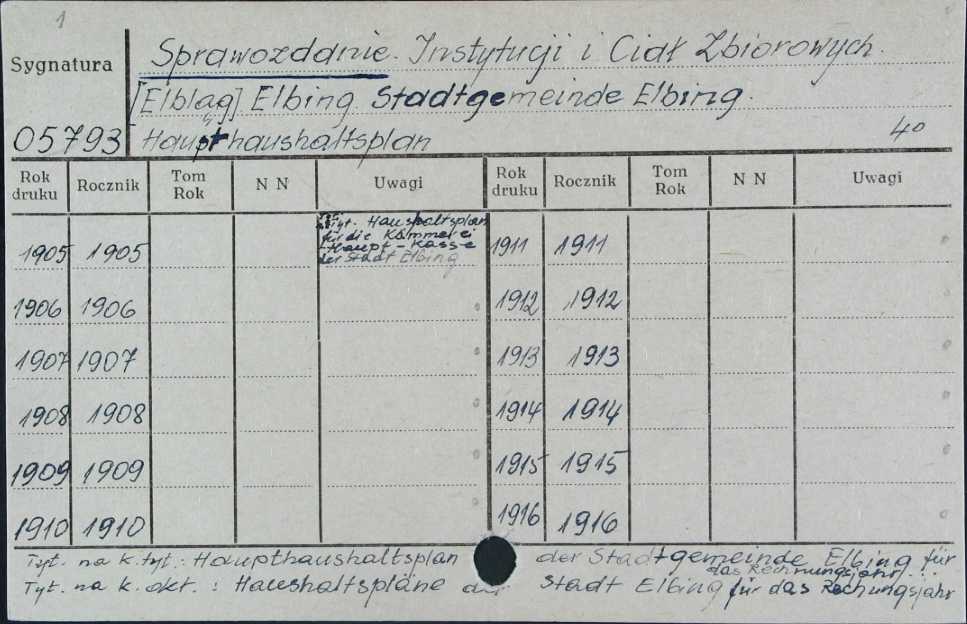 1
Sygnatura
Sprawozdanie. Instytucji i Ciał Zbiorowych.
[Elbląg] Elbing. Stadtgemeinde Elbing.
05793 Haupthaushaltsplan 4°
Rok druku Rocznik Tom Rok N N Uwagi Rok druku Rocznik Tom Rok N N Uwagi
1905 1905 tyt. Haushaltsplan
für die Kämmerei
-Haupt-Kasse
der Stadt Elbing
1911 1911
1906 1906 1912 1912
1907 1907 1913 1913
1908 1908 1914 1914
1909 1909 1915 1915
1910 1910 1916 1916
Tyt. na k. tyt.: Haupthaushaltsplan der Stadtgemeinde Elbing für
das Rechnungsjahr...
Tyt. na k. okł.: Haushaltspläne der Stadt Elbing für das Rechungsjahr